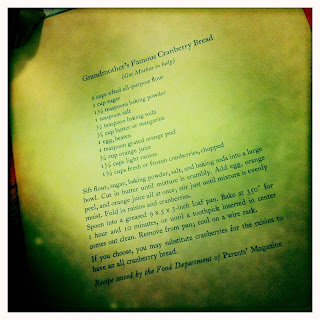 Grandmother's Famous Cranberry Bread
(Get Mother to help)
2 cups sifted all-purpose flour
1 cup sugar
1½ teaspoons baking powder
1 teaspoon salt
½ teaspoon baking soda
¼ cup butter or margarine
1 egg, beaten
1 teaspoon grated orange peel
¾ cup orange juice
1½ cups light raisins
1½ cups fresh or frozen cranberries, chopped
Sift flour, sugar, baking powder, salt, and baking soda into a large
bowl. Cut in butter until mixture is crumbly. Add egg, orange
peel, and orange juice all at once; stir just until mixture is evenly
moist. Fold in raisins and cranberries.
Spoon into a greased 9 x 5 x 3-inch loaf pan. Bake at 350° for
1 hour and 10 minutes, or until a toothpick inserted in center
comes out clean. Remove from pan; cool on a wire rack.
If you choose, you may substitute cranberries for the raisins to
have an all cranberry bread.
Recipe tested by the Food Department of Parents' Magazine